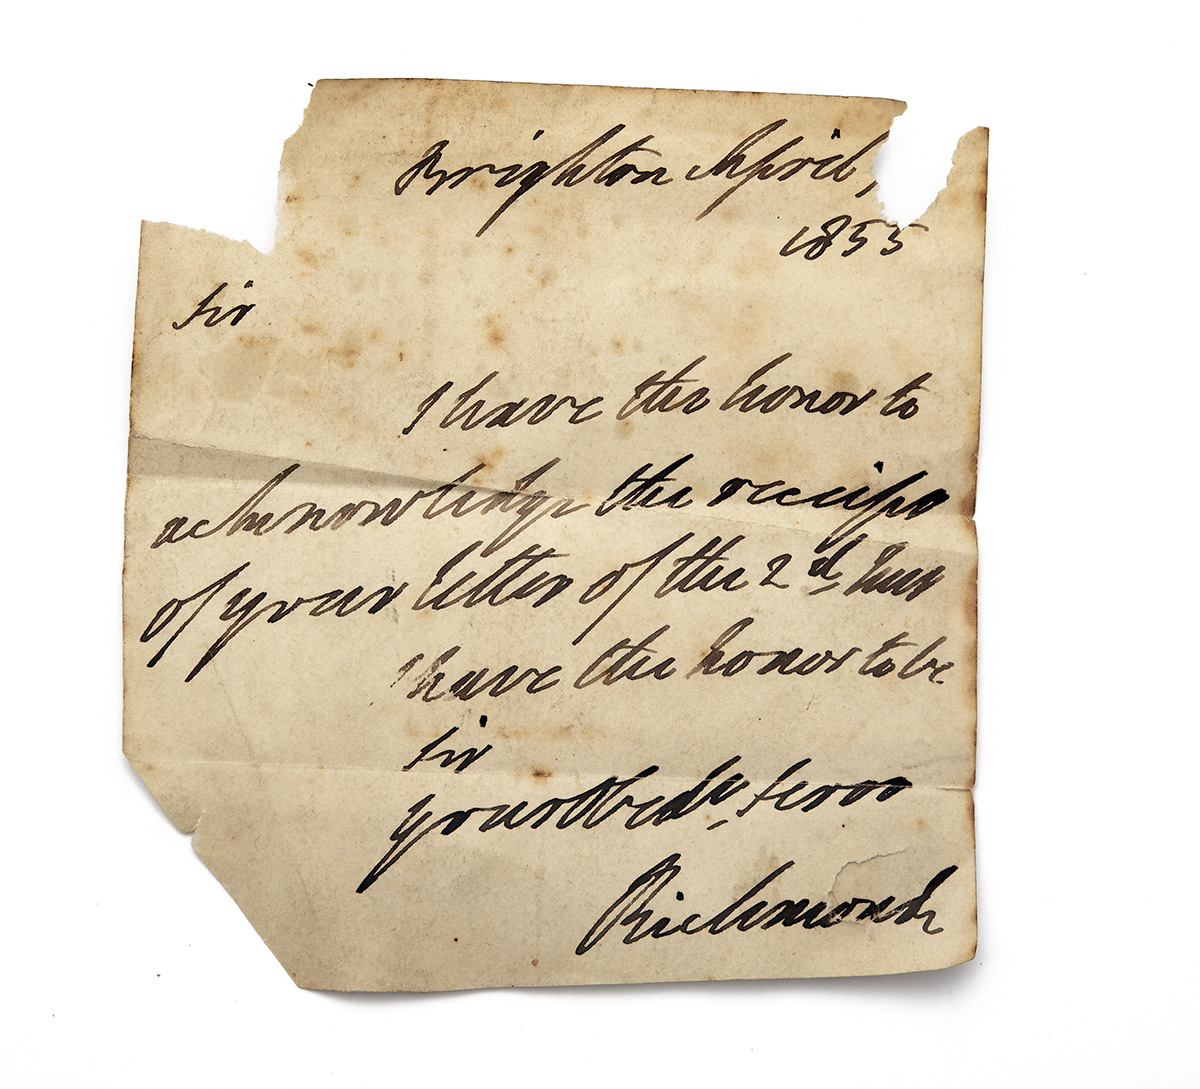 Brighton April,
1855
Sir
I have the honor to
acknowledge the receipt
of your letter of the 2d Inst
I have the honor to be
Sir
your Obedt Serv
Richmond